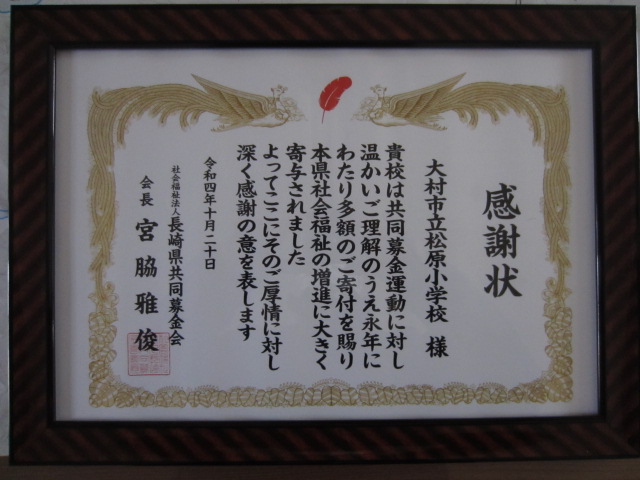 感謝状
大村市立松原小学校 様
貴校は共同募金運動に対し
温かいご理解のうえ永年に
わたり多額のご寄付を賜り
本県社会福祉の増進に大きく
寄与されました
よってここにそのご厚情に対し
深く感謝の意を表します
令和四年十月二十日
社会福祉法人長崎県共同募金会
会長 宮脇雅俊